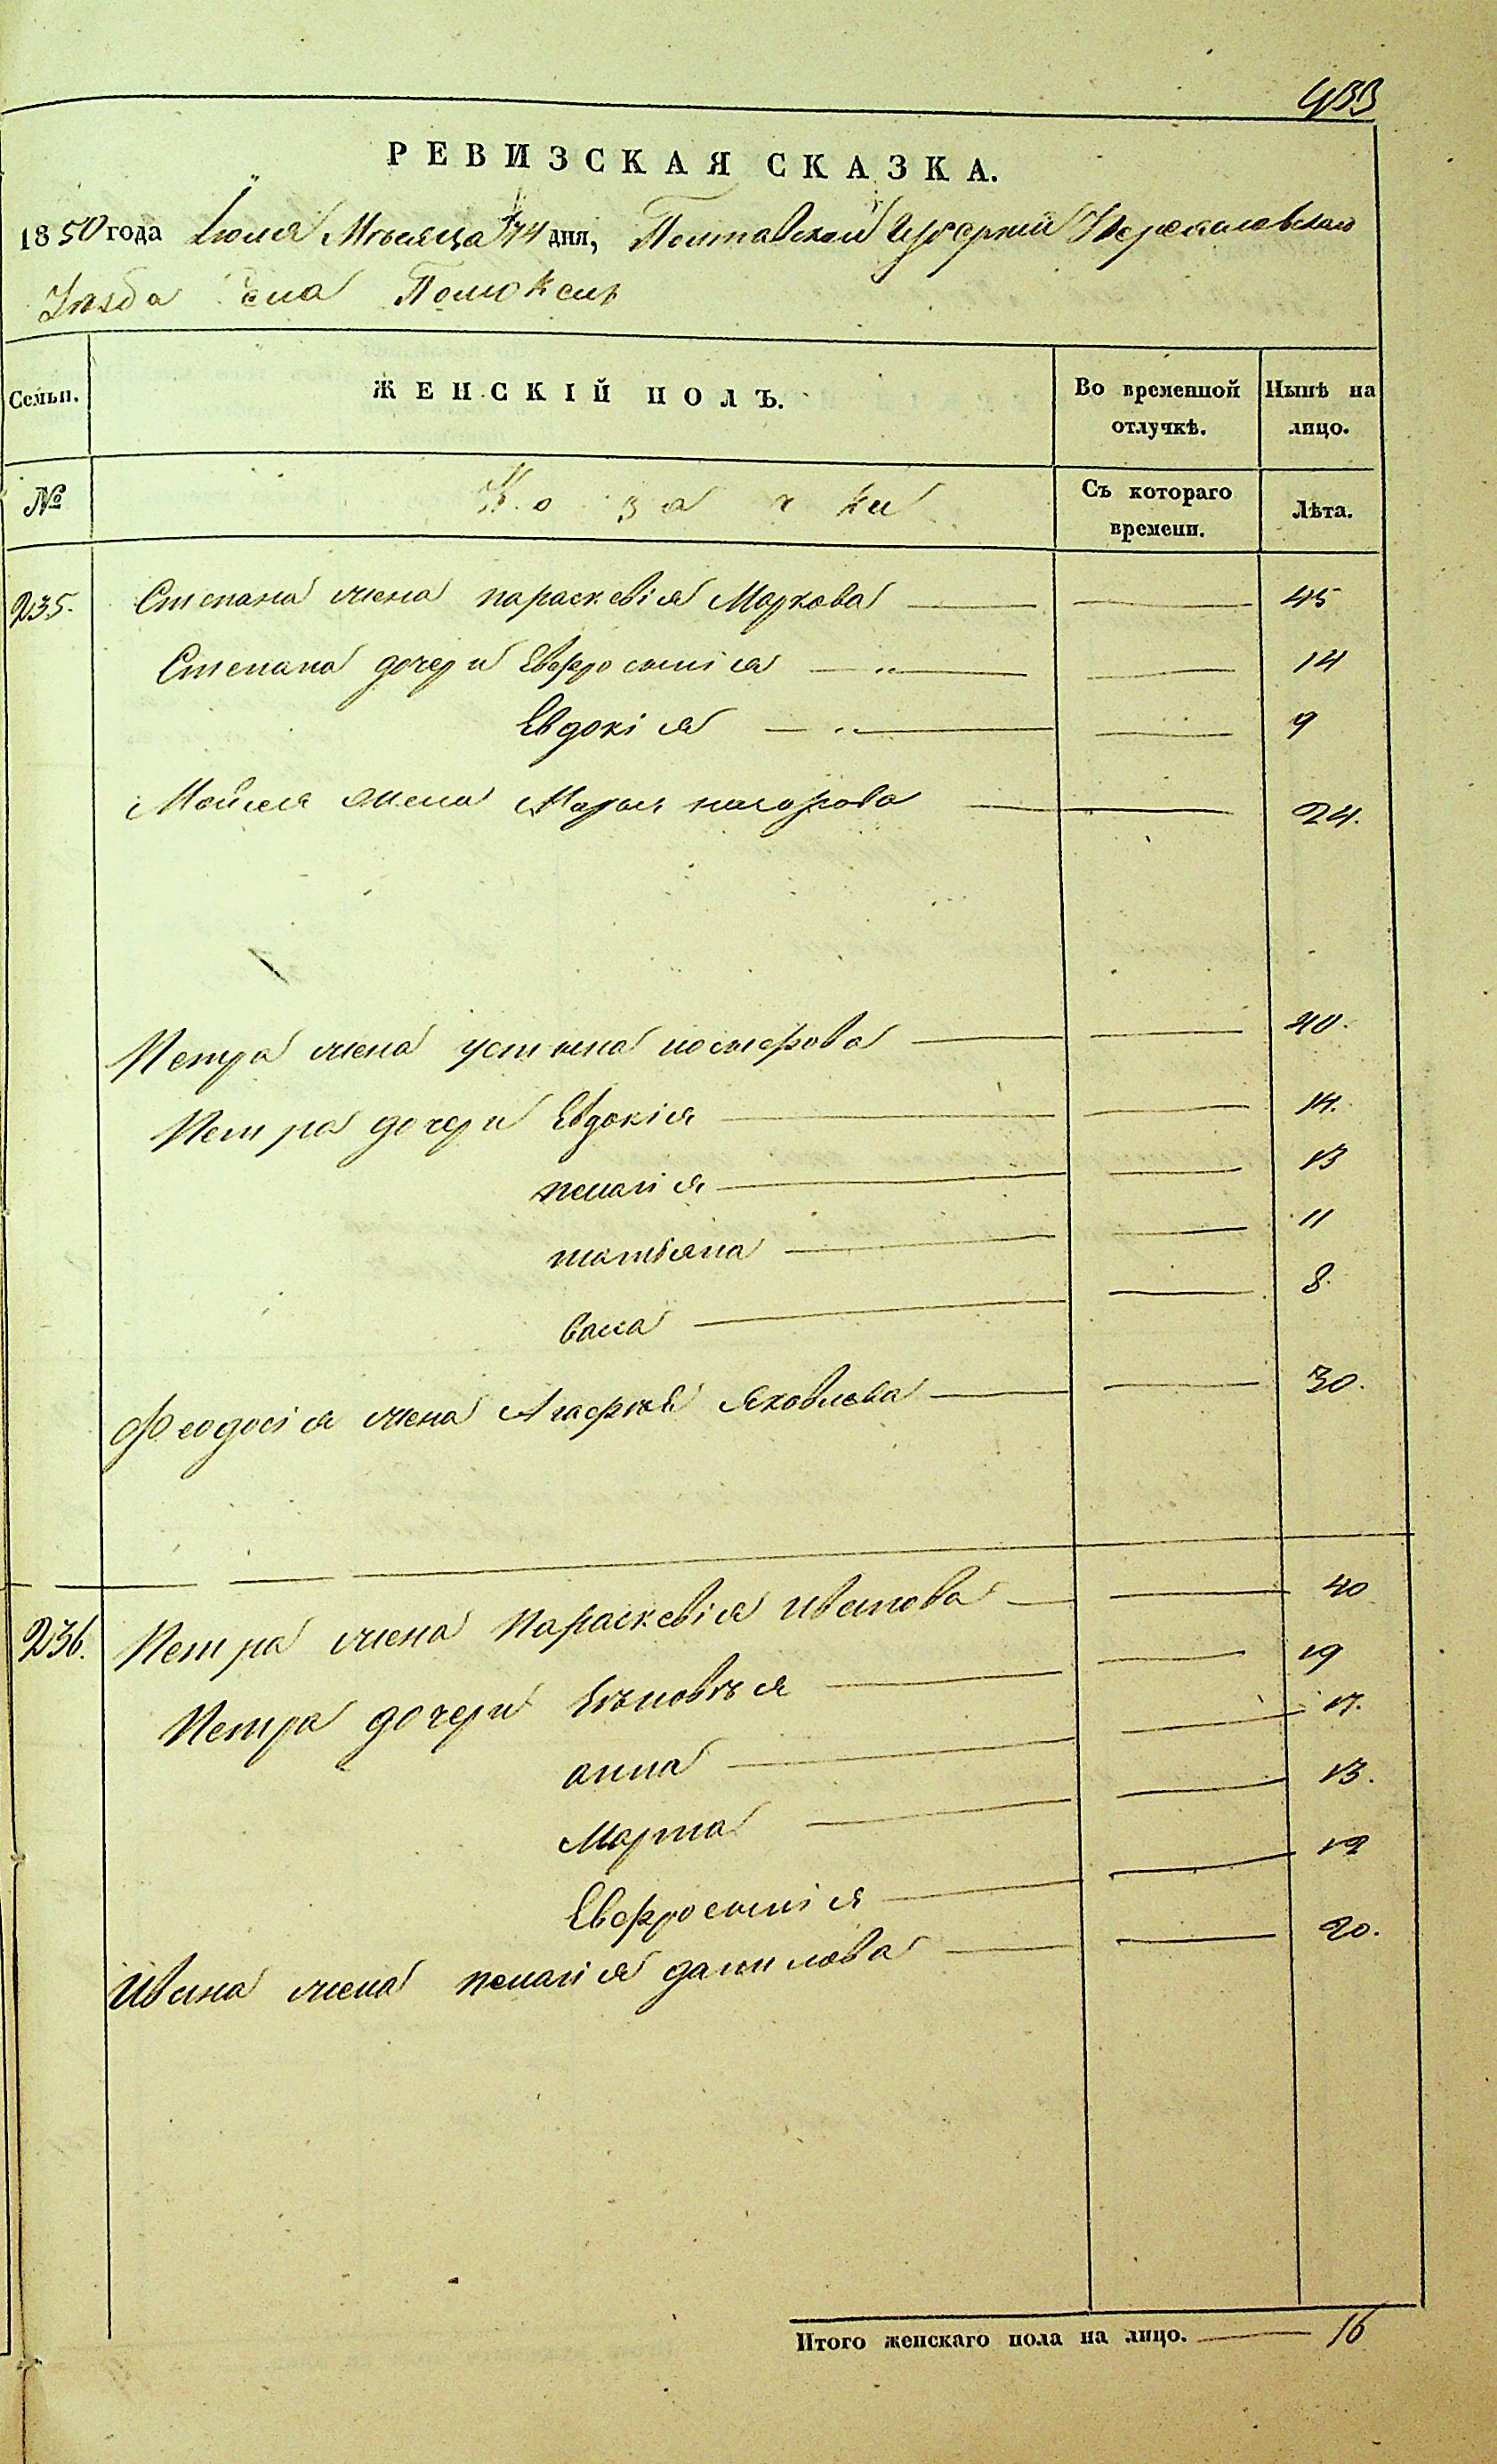 433
РЕВИЗСКАЯ СКАЗКА.
1850 года Іюля Мѣсяца 14 дня, Полтавской Губерніи Переяловского
Уѣзда Села Помоклъ
Семьи. ЖЕНСКІЙ ПОЛЪ. Во временной отлучкѣ. Нынѣ на лицо.
№ Козачки Съ котораго времени. Лѣта.
235. Степана жена параскевія Маркова 45
Степана дочери Евфросинія 14
Евдокія 9
Мойсея жена Марья 24.
Петра жена устина никифорова 40.
Петра дочери Евдокія 14.
пелагія 13
татьяна 11
васа 8.
Феодосія жена Агафія Яковлева 30.
236. Петра жена Параскевія иванова 40
Петра дочери 19
анна 17.
Марта 13.
Евфросинія 12
Ивана жена пелагія данилова 20.
Итого женскаго пола на лицо. 16